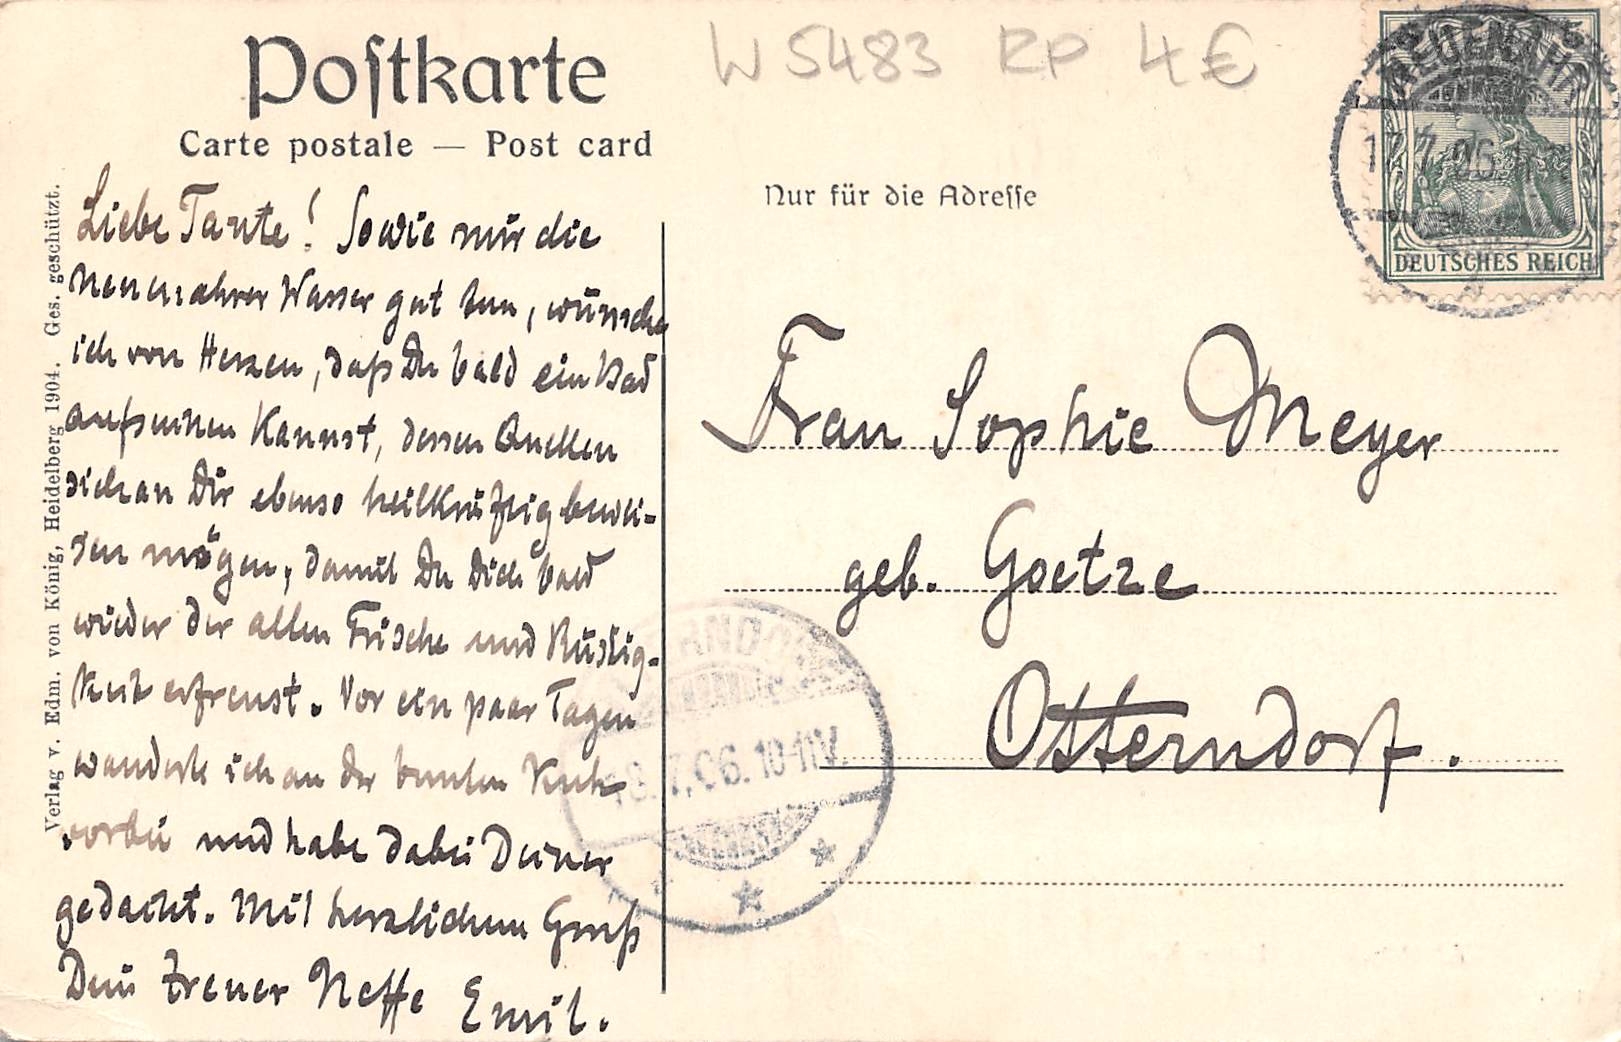 Postkarte
Carte postale — Post card
W 5483 RP 4 €
Nur für die Adresse
NEUENAHR
17.7.06.
DEUTSCHES REICH
Liebe Tante! Sowie mir die
Neuenahrer Wasser gut tun, wünsche
ich von Herzen, daß Du bald ein Bad
aufsuchen kannst, dessen Quellen
sich an Dir ebenso heilkräftig bewei-
sen mögen, damit Du Dich bald
wieder der alten Frische und Rüstig-
keit erfreust. Vor ein paar Tagen
wanderte ich an der bunten Kuh
vorbei und habe dabei Deiner
gedacht. Mit herzlichem Gruß
Dein treuer Neffe Emil.
Frau Sophie Meyer
geb. Goetze
Otterndorf.
18.7.06.10-11V.
Verlag v. Edm. von König, Heidelberg 1904. Ges. geschützt.